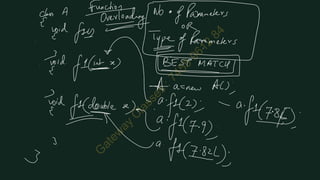 class A
{ void f1()
{
}
void f1(int x)
{
}
void f1(double x)
{
}
}
Function
Overloading
No. of Parameters
OR
Type of Parameters
BEST MATCH
A a=new A();
a.f1(2);
a.f1(7.9)
a.f1(7.82L);
a.f1(7.8f);
Gateway Classes